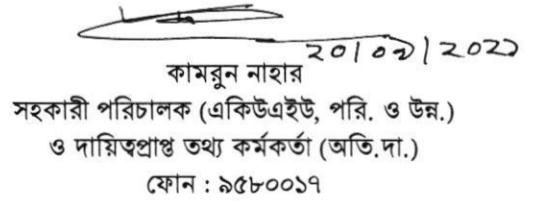 ২০|০৬|২০২১
কামরুন নাহার
সহকারী পরিচালক (একিউএইউ, পরি. ও উন্ন.)
ও দায়িত্বপ্রাপ্ত তথ্য কর্মকর্তা (অতি.দা.)
ফোন : ৯৫৮০০১৭